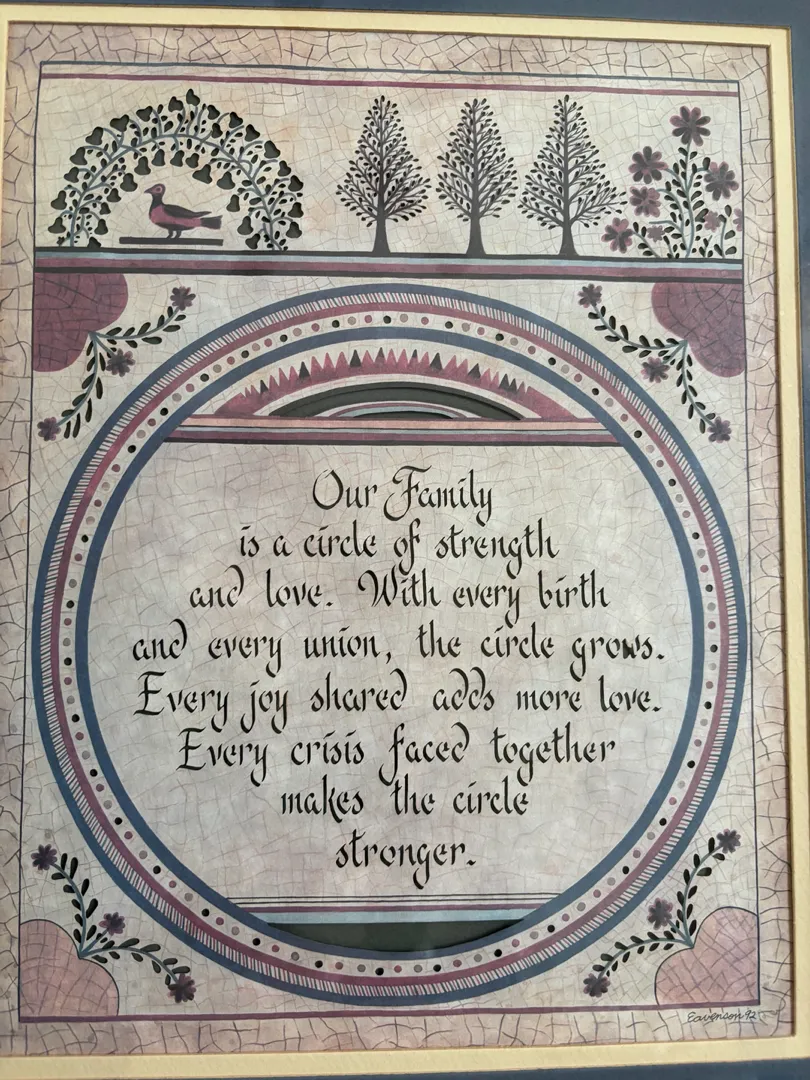 Our Family
is a circle of strength
and love. With every birth
and every union, the circle grows.
Every joy shared adds more love.
Every crisis faced together
makes the circle
stronger.
Eavenson 92